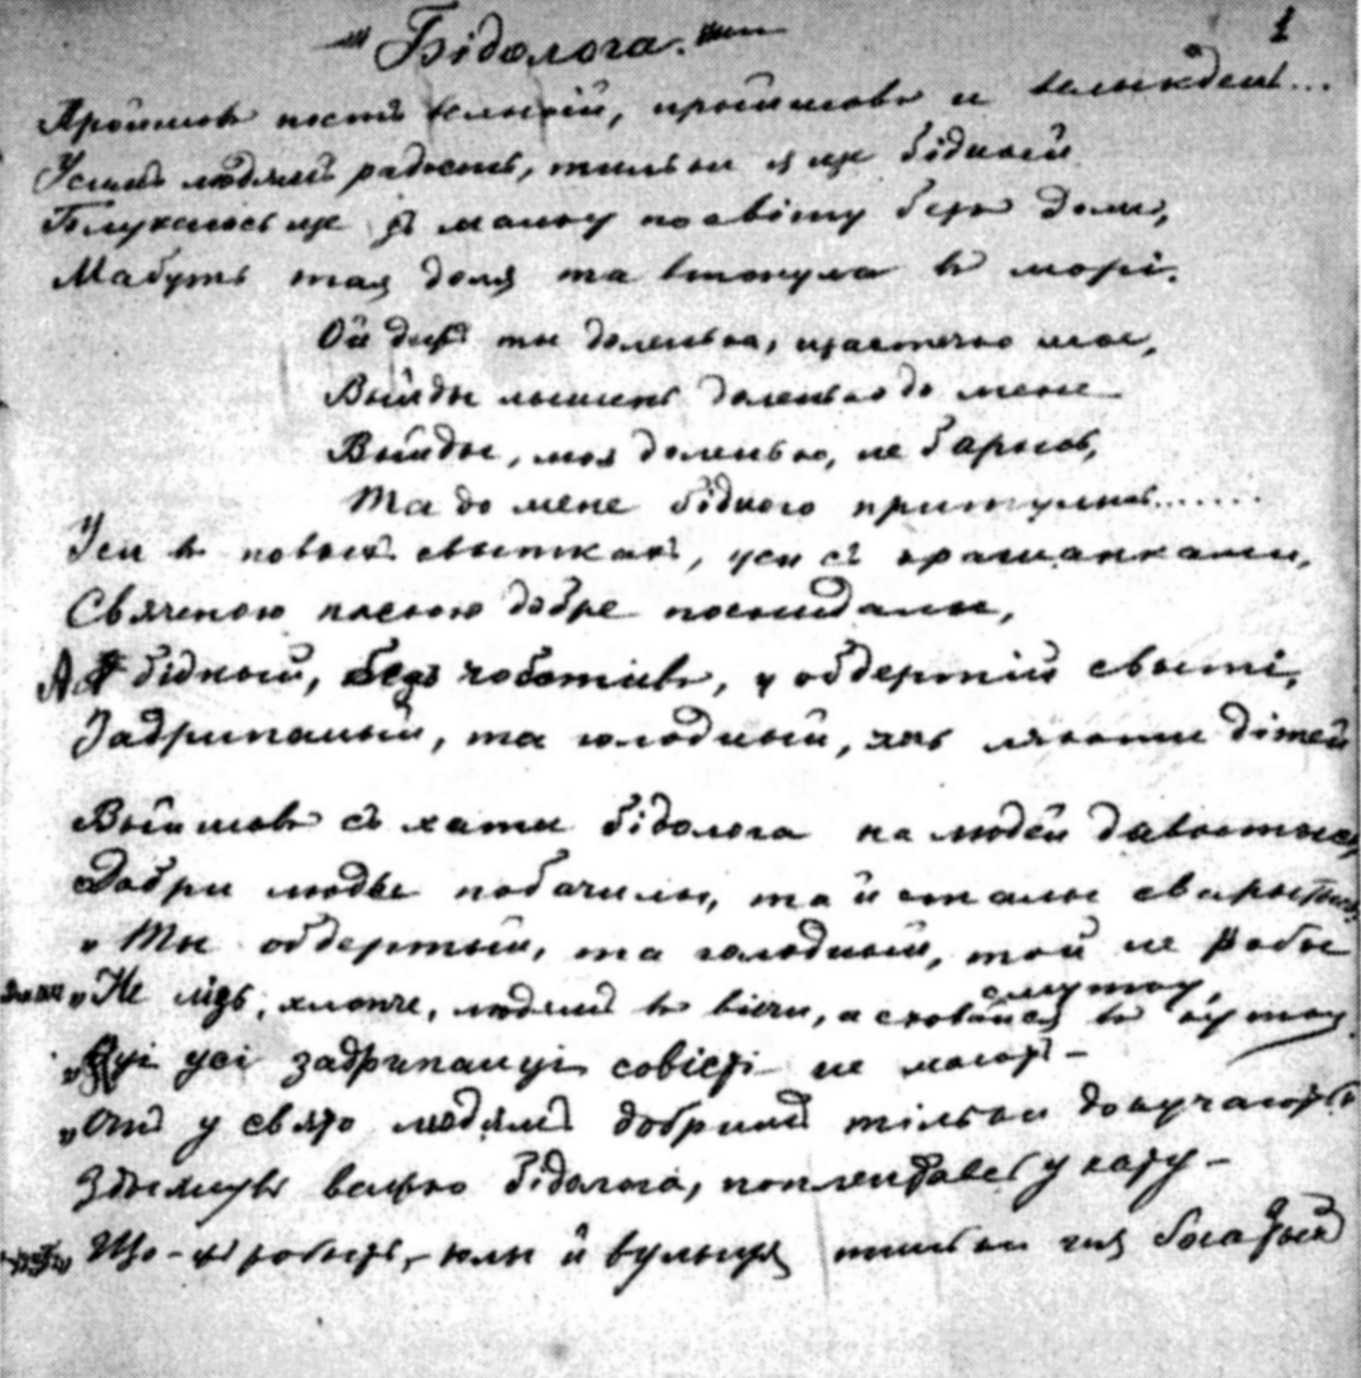 Бідолога. 1
Пройшовъ постъ велыкій, пройшовъ и велыкдень...
Усимъ людямъ радость, тилькы я ще бідный
Блукаюсь ще я малку по світу безъ доли,
Мабуть тая доля та втонула въ морі.
Ой дежъ ты доленька, щастечко мое,
Выйды лышень доленько до мене
Выйды, моя доленько, не барысь,
Та до мене бідного притулысь.......
Уси въ новыхъ свыткахъ, уси съ крашанками,
Свяченою паскою добре поснидалы,
А я бідный, безъ чоботивъ, у обдертій свыті,
Задрипаный, та голодный, якъ лякаты дітей
Выйшовъ съ хаты бідолога на людей дывытысь,
Добри людьє побачилы, та й сталы сварытысь
„Ты обдертый, та голодный, той не робы
„Не лізь, хлопче, людямъ въ вічи, а сховайся въ кутку
смутку,
„Ці усі задрипанці совісті не мають –
„Они у свято людямъ добримъ тількы докучають
Здыхнувъ важко бідолога, поплентавсь у хату –
Що-жъ робыть, – колы й вулыця тилькы для богатый